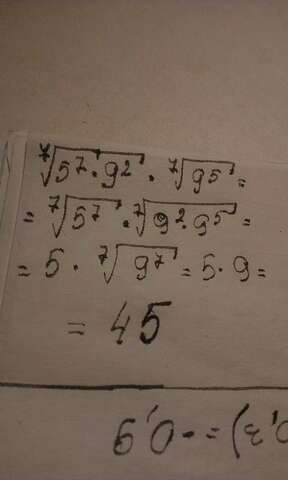 ⁷√(5⁷·9²) · ⁷√(9⁵) =
= ⁷√(5⁷) · ⁷√(9²·9⁵) =
= 5 · ⁷√(9⁷) = 5·9 =
= 45
0,3) = -0,9